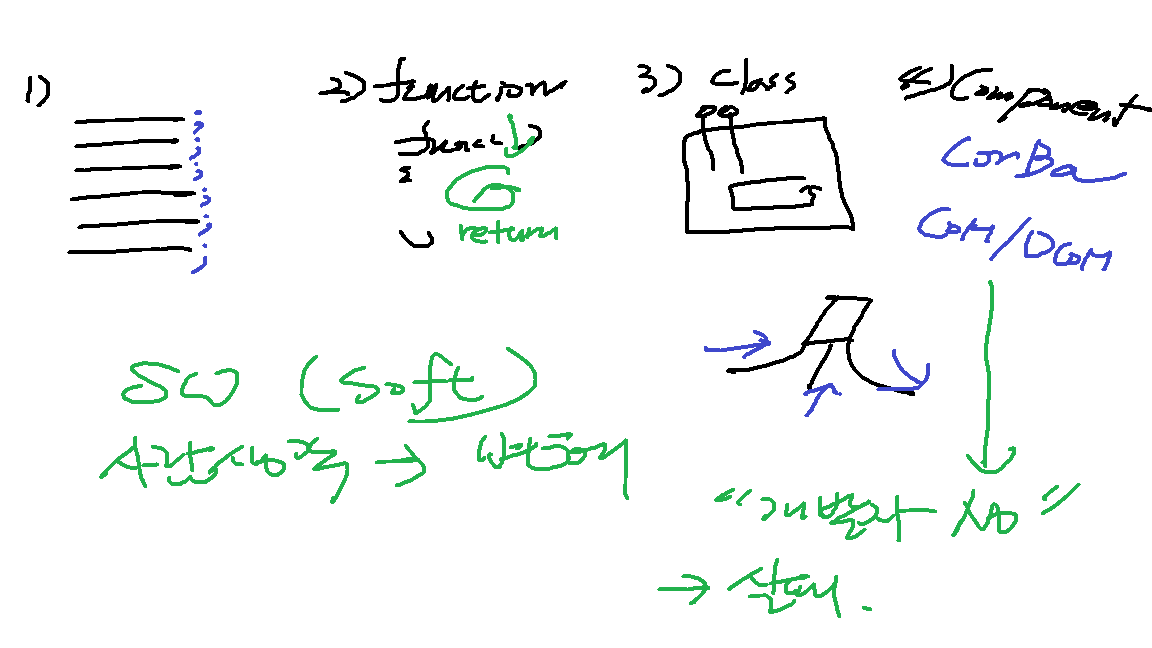 1)
2) function
func( )
:
return
3) class
4) Component
CorBa
COM/DCOM
SW (Soft)
→
"개발자 不"
→ 실패.